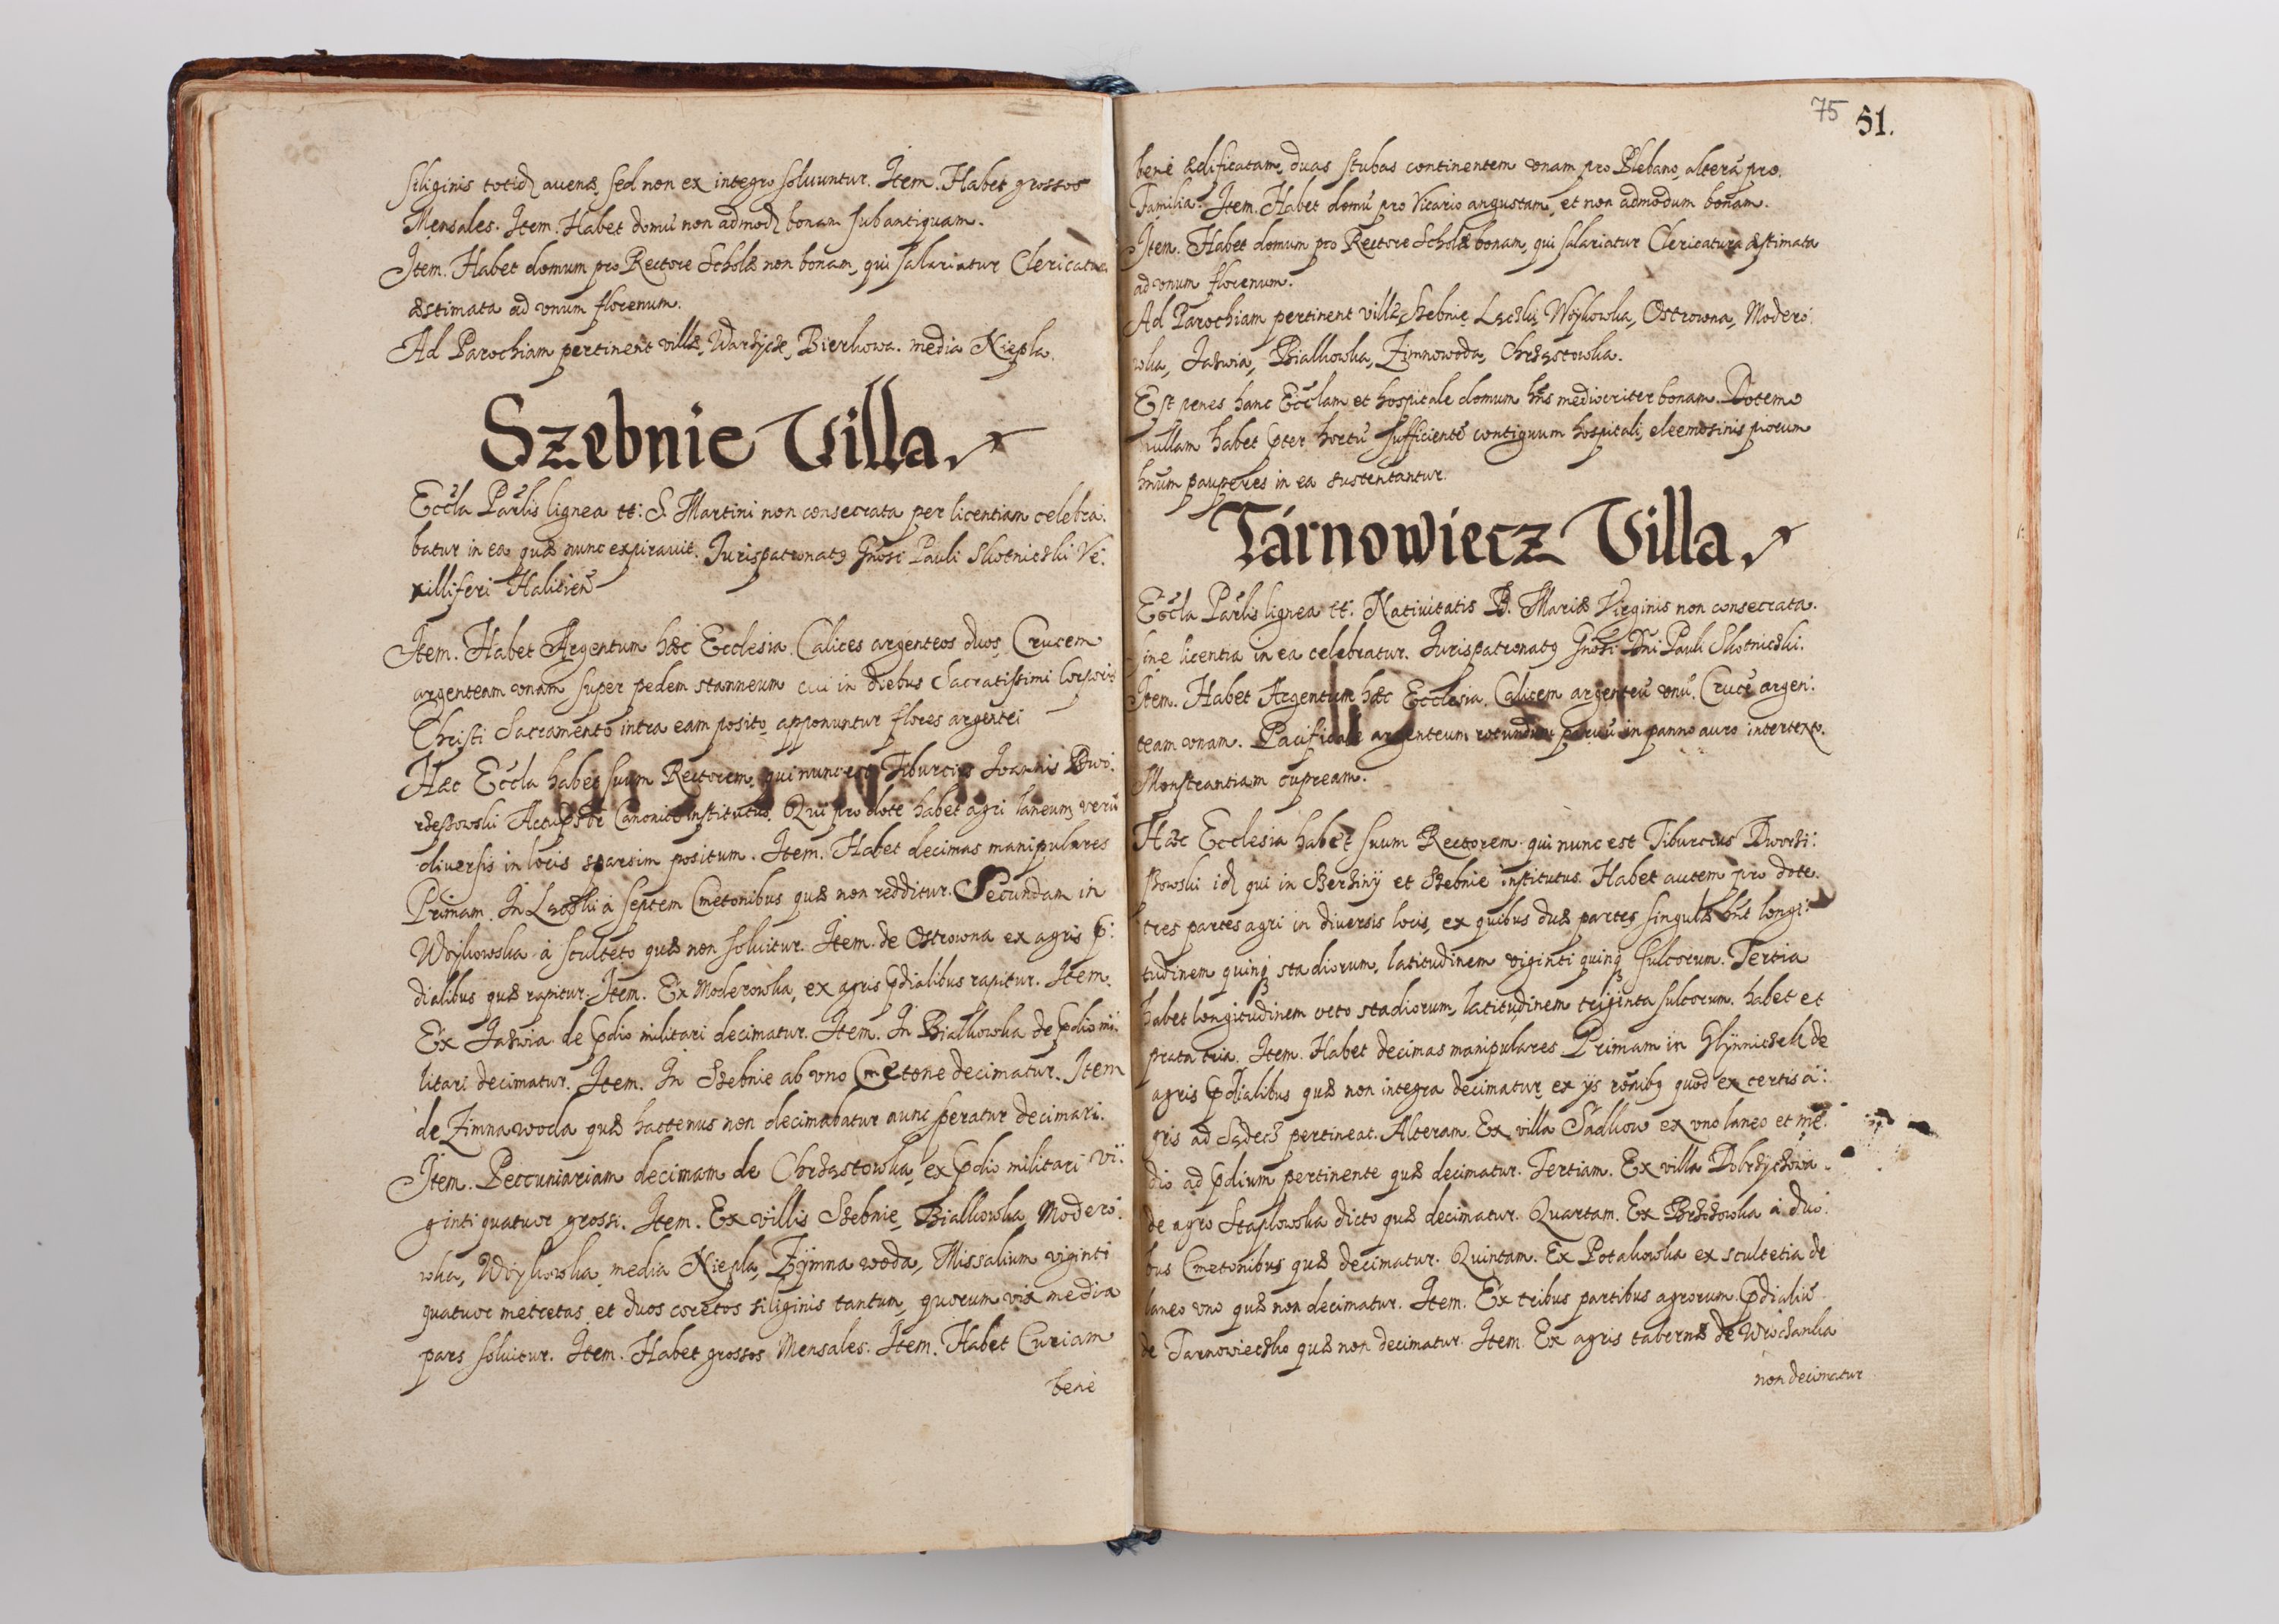 siliginis totidȝ auenæ, sed non ex integro soluuntur. Item. Habet grossos
Mensales. Item. Habet domũ non admodȝ bonam sub antiquam.
Item. Habet domum pro Rectore Scholæ non bonam, qui salariatur Clericatura
æstimata ad vnum florenum.
Ad Parochiam pertinent villæ, Warzycze, Bierkowa. media Niepla.
Szebnie Villa
Eccla Parlis lignea tt: S. Martini non consecrata per licentiam celebra:
batur in ea quæ nunc expirauit. Jurispatronatꝰ Gnosi Pauli Skotniczki Ve:
xilliferi Halicien
Item. Habet Argentum hæc Ecclesia. Calices argenteos duos, Crucem
argenteam vnam super pedem stanneum cui in diebus Sacratissimi Corporis
Christi Sacramento intra eam posito apponuntur flores argentei
Hæc Eccla habet suum Rectorem qui nunc est Tiburcius Joannis Dwo:
rzeszowski Canonice institutus. Qui pro dote habet agri laneum verũ
diuersis in locis sparsim positum. Item. Habet decimas manipulares
Primam. In Laczki à septem Cmetonibus quæ non redditur. Secundam in
Woykowska à sculteto quæ non soluitur. Item. de Ostrowna ex agris p:
dialibus quæ rapitur. Item. Ex Moderowka, ex agris pdialibus rapitur. Item.
Ex Jaszwia de pdio militari decimatur. Item. In Bialkowka de pdio mi:
litari decimatur. Item. In Szebnie ab vno Cmetone decimatur. Item
de Zimna woda quæ hactenus non decimabatur nunc speratur decimari.
Item. Peccuniariam decimam de Chrząstowka, ex pdio militari vi:
ginti quatuor grossi. Item. Ex villis Szebnie, Bialkowka, Modero:
wka, Woykowka, media Niepla, Zymna woda, Missalium viginti
quatuor metretas et duos coretos siliginis tantum, quorum vix media
pars soluitur. Item. Habet grossos Mensales. Item. Habet Curiam
benè
75 51.
benè ædificatam, duas stubas continentem vnam pro Plebano, alterã pro
Familia. Item. Habet domũ pro Vicario angustam, et non admodum bonam.
Item. Habet domum pro Rectore Scholæ bonam, qui salariatur Clericatura æstimata
ad vnum florenum.
Ad Parochiam pertinent villæ, Szebnie Lączki, Woykowka, Ostrowna, Modero:
wka, Jaszwia, Bialkowka, Zimnowoda, Chrząstowka.
Est penes hanc Ecclam et hospitale domum hñs mediocriter bonam. Dotem
nullam habet pter hortũ sufficientẽ contiguum hospitali, eleemosinis piorum
hnum pauperes in ea sustentantur.
Tárnowiecz Villa
Eccla Parlis lignea tt: Natiuitatis B. Mariæ Virginis non consecrata.
sine licentia in ea celebratur. Jurispatronatꝰ Gnosi Dni Pauli Skotniczki.
Item. Habet Argentum hæc Ecclesia. Calicem argenteũ vnũ. Crucẽ argen:
team vnam. Pacificale argenteum rotundum paruũ in panno auro intertexto.
Monstrantiam cupream.
Hæc Ecclesia habet suum Rectorem qui nunc est Tiburcius Dworzi:
szowski idȝ qui in Szerziny et Szebnie institutus. Habet autem pro dote
tres partes agri in diuersis locis, ex quibus duæ partes singulæ hñt longi:
tudinem quinqȝ stadiorum, latitudinem viginti quinqȝ sulcorum. Tertia
habet longitudinem octo stadiorum, latitudinem triginta sulcorum. habet et
prata tria. Item. Habet decimas manipulares Primam in Glynniczek de
agris pdialibus quæ non integra decimatur ex ijs rõnibꝰ quod ex certis a:
gris ad Sądecz pertineat. Alteram. Ex villa Sadkow ex vno laneo et me:
dio ad pdium pertinente quæ decimatur. Tertiam. Ex villa Dobrzychowa
de agro Staplowska dicto quæ decimatur. Quartam. Ex Brzezowka à duo:
bus Cmetonibus quæ decimatur. Quintam. Ex Potakowka ex scultetia de
laneo vno quæ non decimatur. Item. Ex tribus partibus agrorum pdialiũ
de Tarnowieczko quæ non decimatur. Item. Ex agris tabernæ de Wroczanka
non decimatur